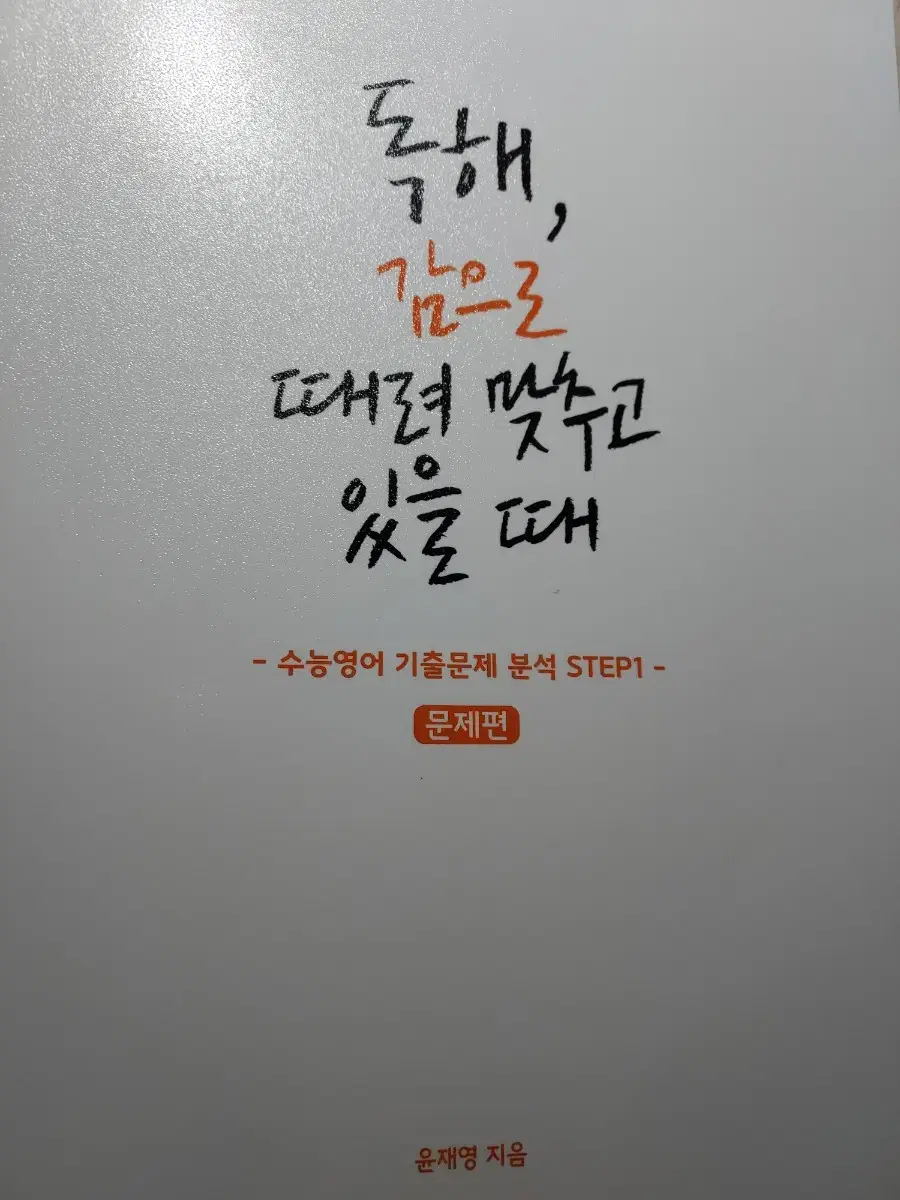 독해,
감으로
때려 맞추고
있을 때
- 수능영어 기출문제 분석 STEP1 -
문제편
윤재영 지음